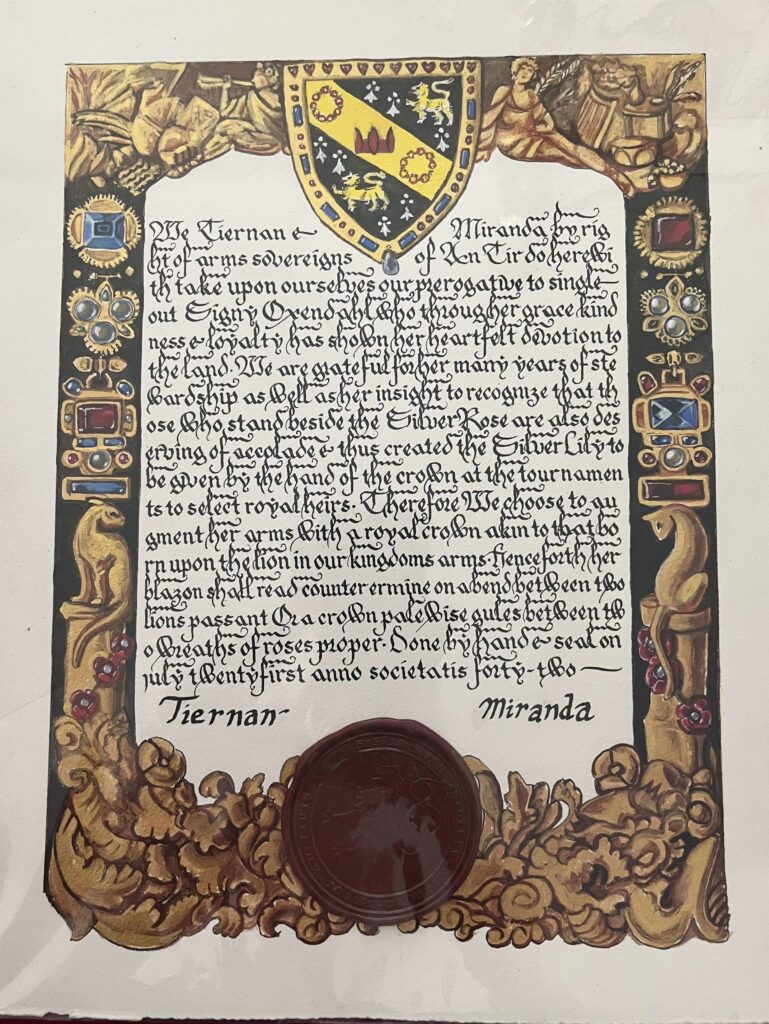 We Tiernan & Miranda by rig
ht of arms sovereigns of An Tir do herewi
th take upon ourselves our prerogative to single
out Signy Oxendahl who through her grace kind
ness & loyalty has shown her heartfelt devotion to
the land. We are grateful for her many years of ste
wardship as well as her insight to recognize that th
ose who stand beside the Silver Rose are also des
erving of accolade & thus created the Silver Lily to
be given by the hand of the crown at the tournamen
ts to select royal heirs. Therefore We choose to au
gment her arms with a royal crown akin to that bo
rn upon the lion in our kingdoms arms. Henceforth her
blazon shall read counter ermine on a bend between two
lions passant Or a crown palewise gules between tw
o wreaths of roses proper. Done by hand & seal on
july twentyfirst anno societatis forty-two
Tiernan Miranda